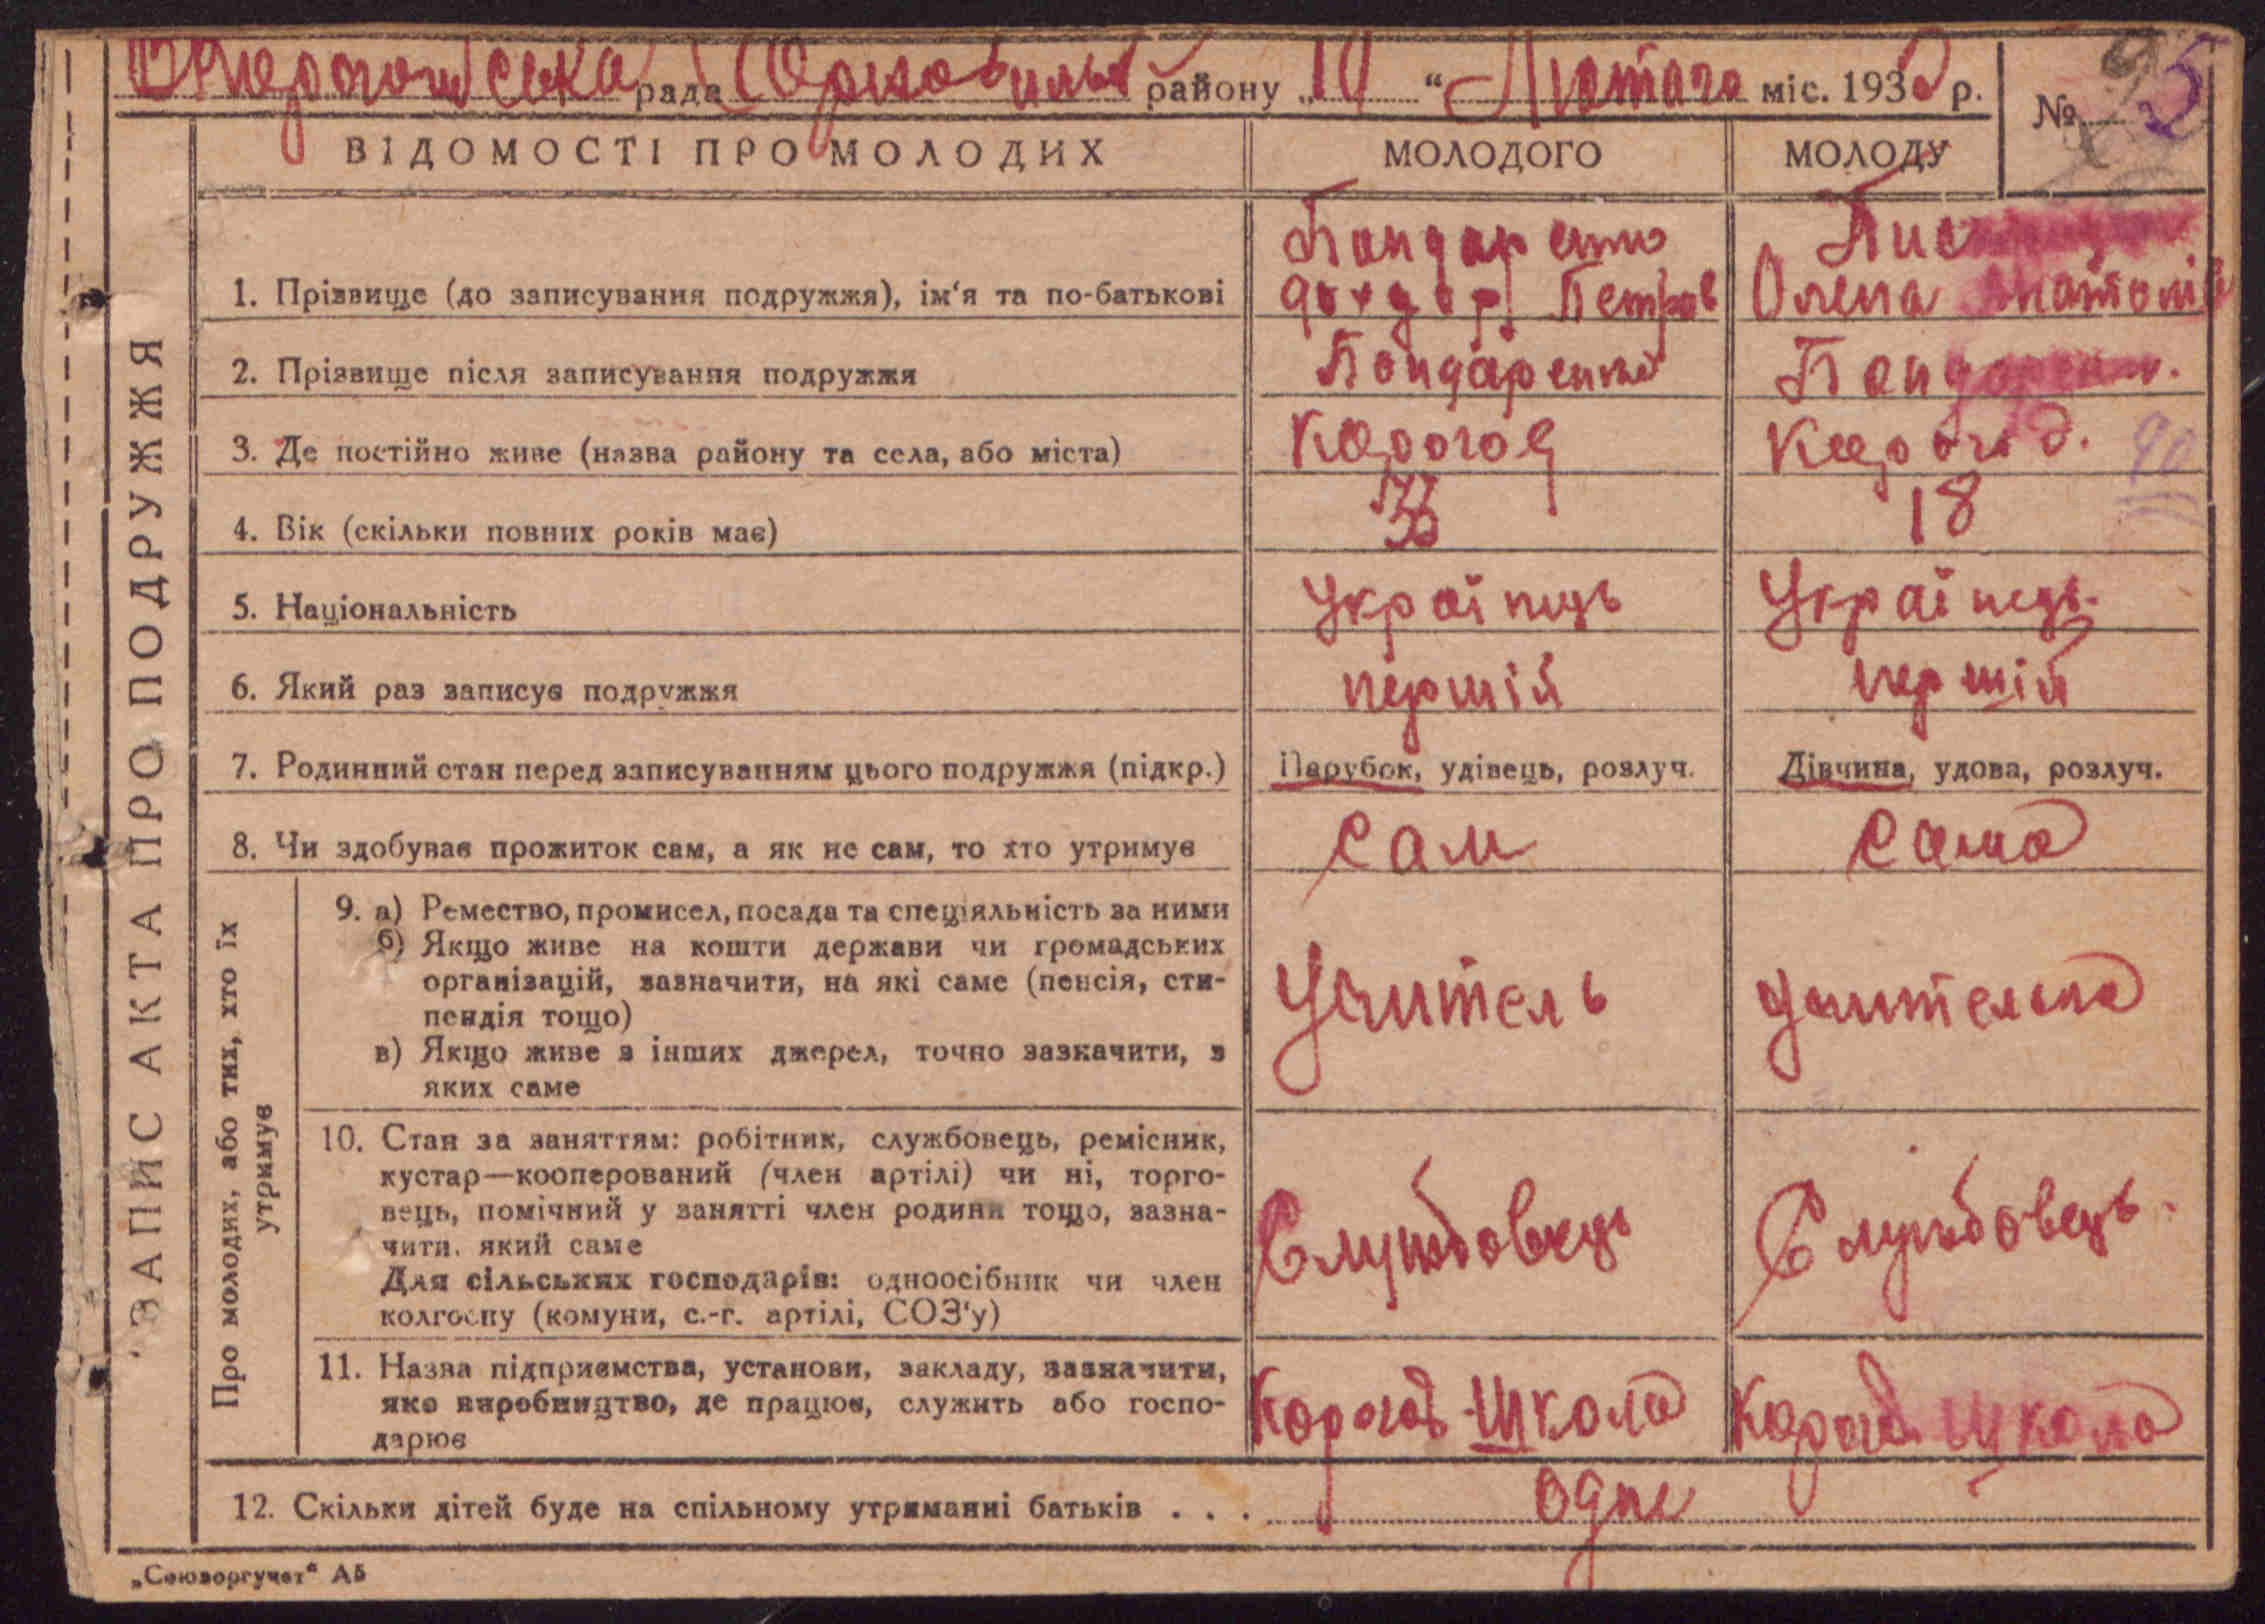 рада району „10“ Лютого міс. 193 р.
№ 5
ВІДОМОСТІ ПРО МОЛОДИХ МОЛОДОГО МОЛОДУ
ЗАПИС АКТА ПРО ПОДРУЖЖЯ
Бондаренко
1. Прізвище (до записування подружжя), ім'я та по-батькові Петров Олена
2. Прізвище після записування подружжя Бондаренко
3. Де постійно живе (назва району та села, або міста) Корогод Корогод. 90
4. Вік (скільки повних років має) 18
5. Національність Українець Українець.
6. Який раз записує подружжя першій першій
7. Родинний стан перед записуванням цього подружжя (підкр.) Парубок, удівець, розлуч. Дівчина, удова, розлуч.
8. Чи здобував прожиток сам, а як не сам, то хто утримує сам сама
Про молодих, або тих, хто їх
утримує
9. а) Ремество, промисел, посада та спеціяльність за ними
б) Якщо живе на кошти держави чи громадських
організацій, зазначити, на які саме (пенсія, сти-
пендія тощо)
в) Якщо живе з інших джерел, точно зазначити, з
яких саме
Учитель учителька
10. Стан за заняттям: робітник, службовець, ремісник,
кустар—кооперований (член артілі) чи ні, торго-
вець, помічний у занятті член родини тощо, зазна-
чити, який саме
Для сільських господарів: одноосібник чи член
колгоспу (комуни, с.-г. артілі, СОЗ'у)
Службовець Службовець.
11. Назва підприємства, установи, закладу, зазначити,
яке виробництво, де працює, служить або госпо-
дарює
Корогод Школа Корогод Школа
12. Скільки дітей буде на спільному утриманні батьків . . . одне
„Союзоргучет“ А5